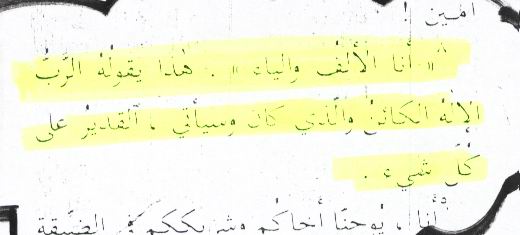 آمين !
٨ « أنا الألف والياء » . هٰذا يقولُهُ الرَّبُّ
الإلٰهُ الكائنُ والَّذي كانَ وسيأتي ، القديرُ على
كُلِّ شيءٍ .
٩ أنا ، يوحنّا أخاكُم وشريكَكم في الضيقة